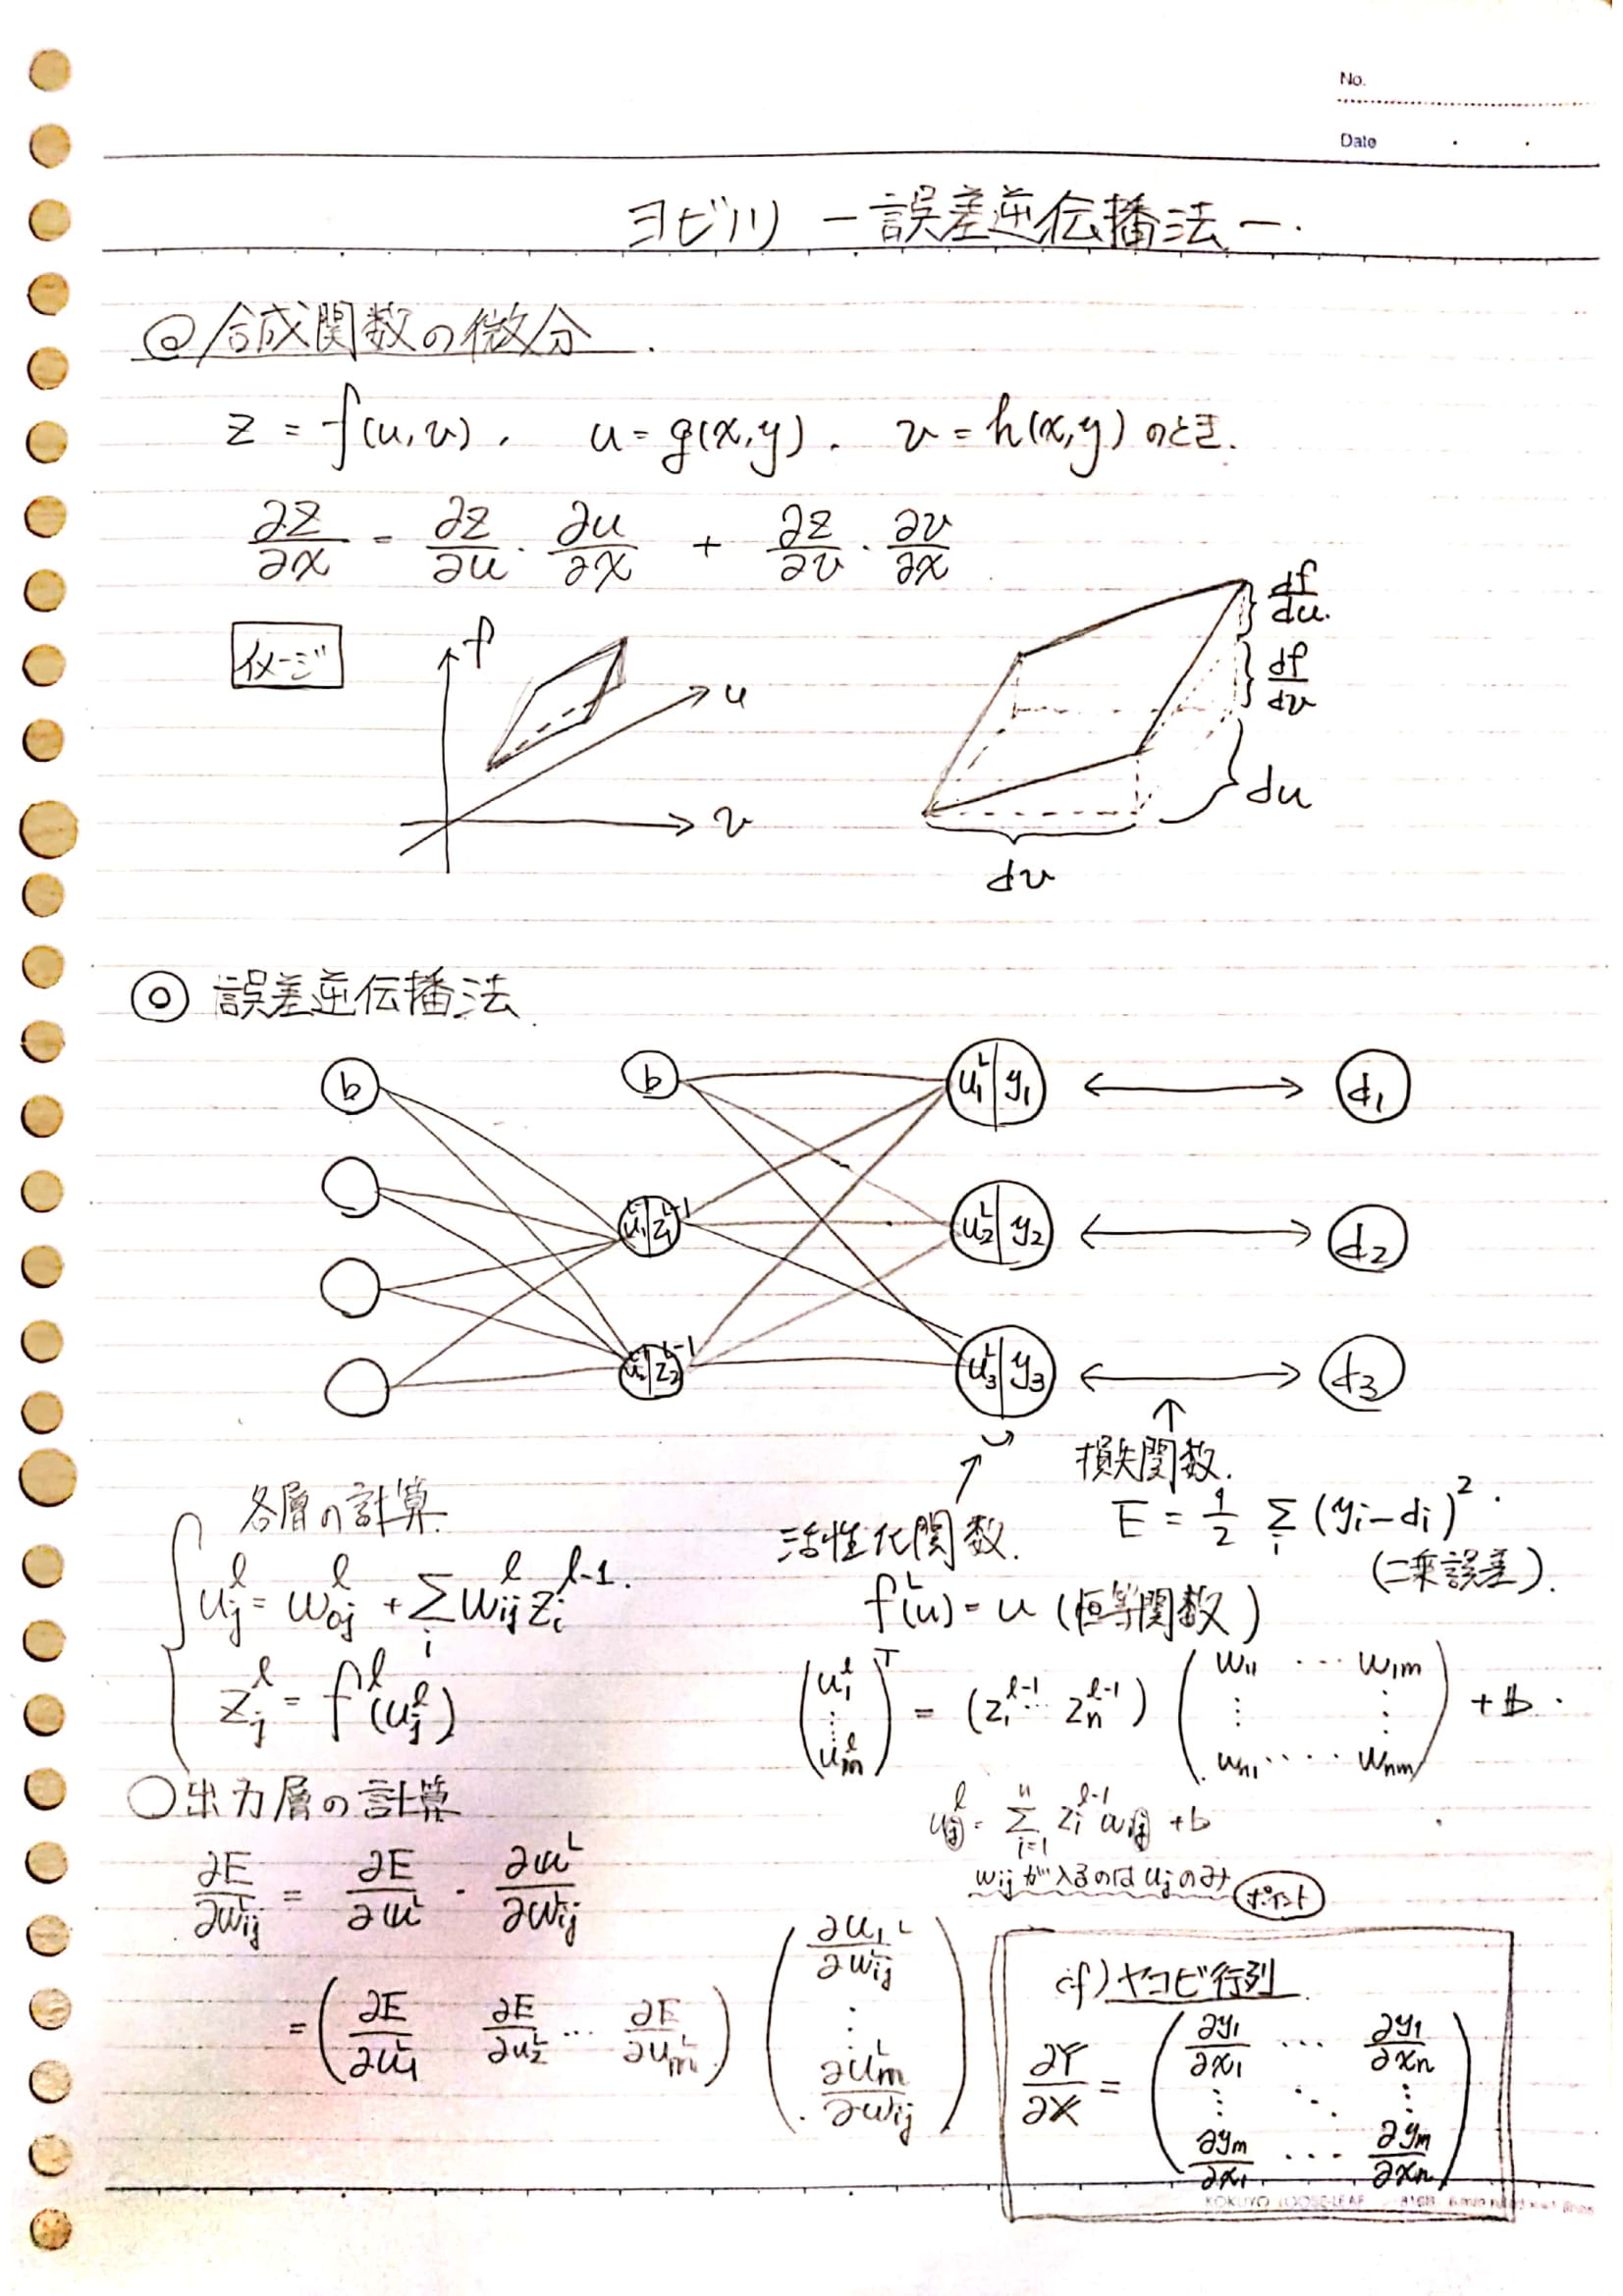 No.
Date
ヨビノリ ー誤差逆伝播法ー.
◎合成関数の微分.
z = f(u,v), u = g(x,y). v = h(x,y) のとき.
∂z/∂x = ∂z/∂u・∂u/∂x + ∂z/∂v・∂v/∂x
イメージ
f
u
v
df/du.
df/dv
du
dv
◎ 誤差逆伝播法.
b b u₁ᴸ|y₁ d₁
u₁ᴸ⁻¹|z₁ᴸ⁻¹ u₂ᴸ|y₂ d₂
u₂ᴸ⁻¹|z₂ᴸ⁻¹ u₃ᴸ|y₃ d₃
損失関数.
E = 1/2 Σ_i (y_i − d_i)².
(二乗誤差).
活性化関数.
f^L(u) = u (恒等関数)
各層の計算.
u_j^l = w_{0j}^l + Σ_i w_{ij}^l z_i^{l-1}.
z_j^l = f^l(u_j^l)
(u_1^l ⋮ u_m^l)^T = (z_1^{l-1} … z_n^{l-1}) (w_{11} … w_{1m} ⋮ ⋮ w_{n1} … w_{nm}) + b.
u_j^l = Σ_{i=1}^n z_i^{l-1} w_{ij} + b
w_{ij} が入るのは u_j のみ ポイント
○出力層の計算
∂E/∂w_{ij}^L = ∂E/∂u^L・∂u^L/∂w_{ij}^L
= (∂E/∂u_1^L ∂E/∂u_2^L … ∂E/∂u_m^L) (∂u_1^L/∂w_{ij}^L ⋮ ∂u_m^L/∂w_{ij}^L)
cf) ヤコビ行列.
∂Y/∂X = (∂y_1/∂x_1 … ∂y_1/∂x_n ⋮ ⋱ ⋮ ∂y_m/∂x_1 … ∂y_m/∂x_n)
KOKUYO LOOSE-LEAF